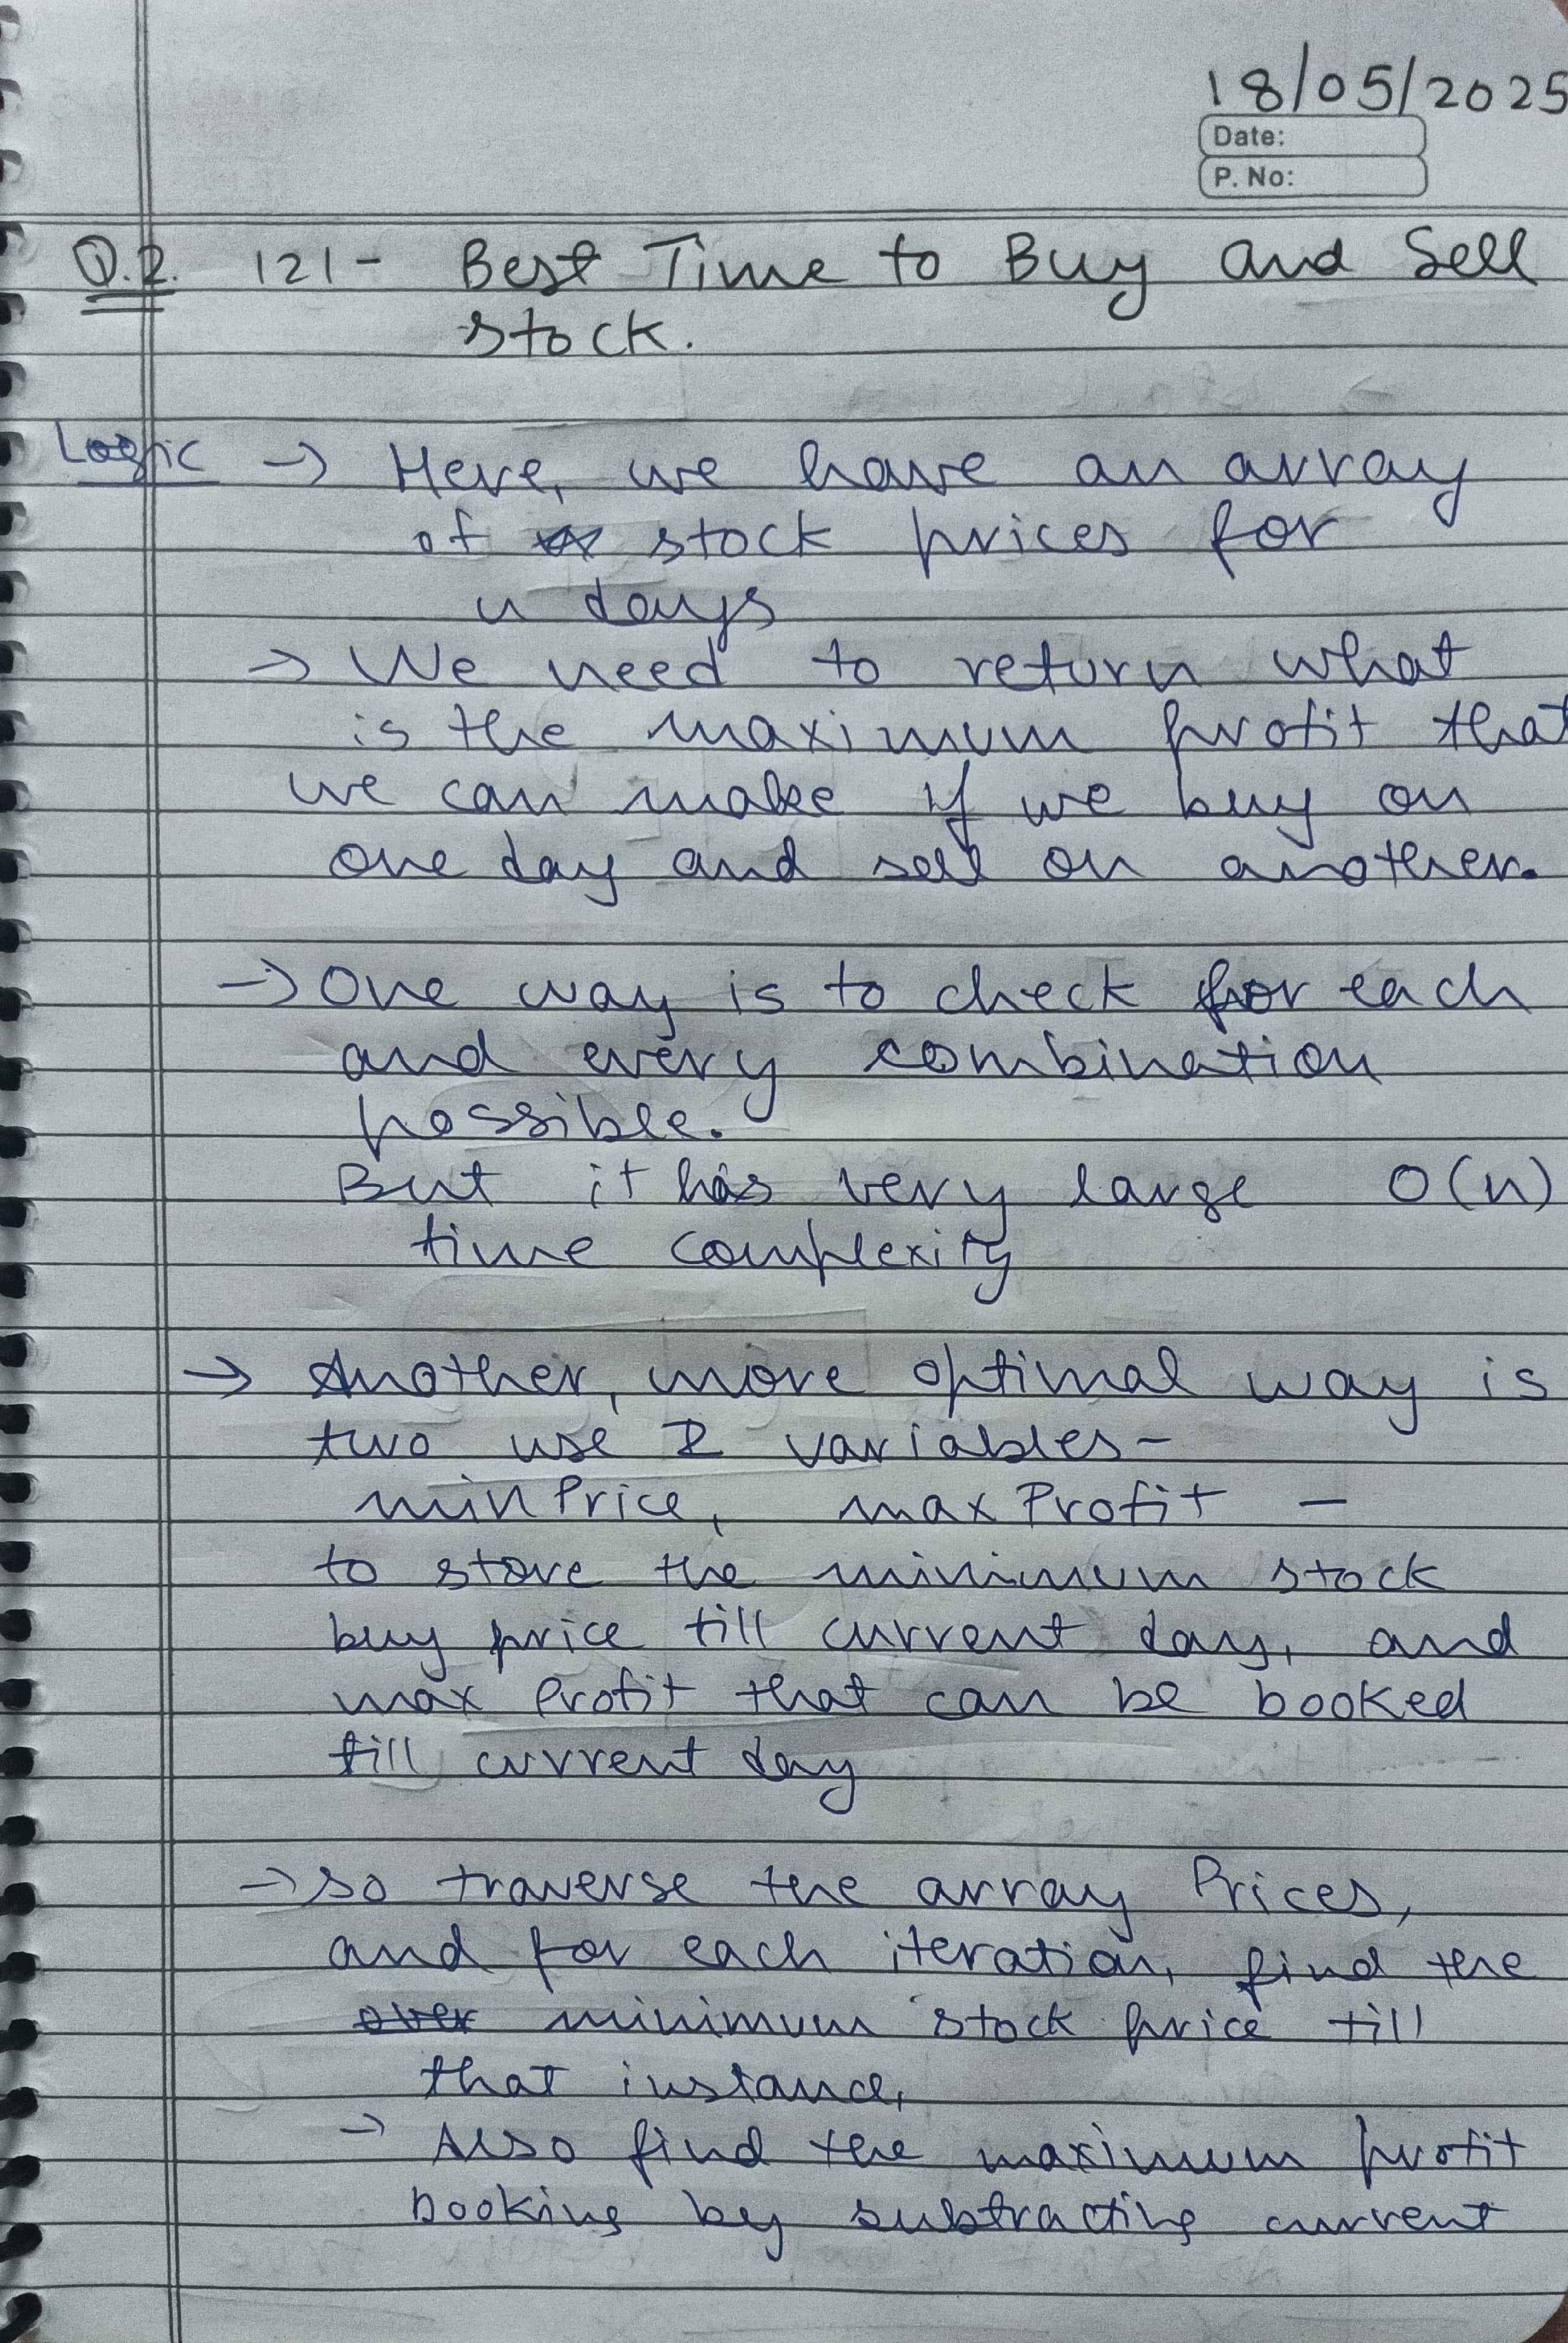 18/05/2025
Date:
P. No:
Q.2. 121 - Best Time to Buy and Sell
stock.
Logic → Here, we have an array
of stock prices for
n days
→ We need to return what
is the maximum profit that
we can make if we buy on
one day and sell on another.
→ One way is to check for each
and every combination
possible.
But it has very large O(n)
time complexity
→ Another, more optimal way is
two use 2 variables-
minPrice, maxProfit -
to store the minimum stock
buy price till current day, and
max Profit that can be booked
till current day
→ so traverse the array Prices,
and for each iteration, find the
over minimum stock price till
that instance,
→ Also find the maximum profit
booking by subtracting current